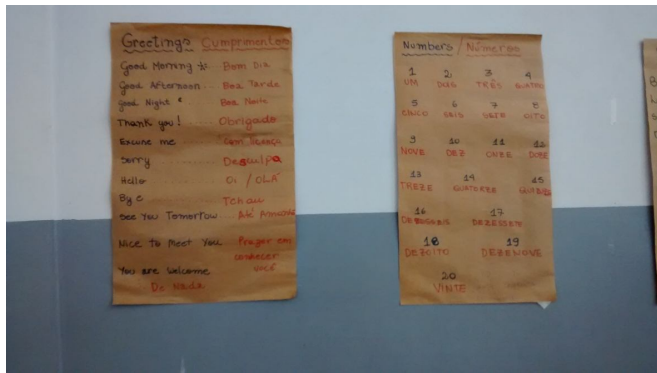 Greetings Cumprimentos
Good Morning Bom Dia
Good Afternoon Boa Tarde
Good Night Boa Noite
Thank you! Obrigado
Excuse me Com licença
Sorry Desculpa
Hello Oi / OLÁ
Bye Tchau
See You Tomorrow Até Amanhã
Nice to Meet You Prazer em
conhecer
você
You are Welcome
De Nada
Numbers / Números
1 2 3 4
UM DOIS TRÊS QUATRO
5 6 7 8
CINCO SEIS SETE OITO
9 10 11 12
NOVE DEZ ONZE DOZE
13 14 15
TREZE QUATORZE QUINZE
16 17
DEZESSEIS DEZESSETE
18 19
DEZOITO DEZENOVE
20
VINTE